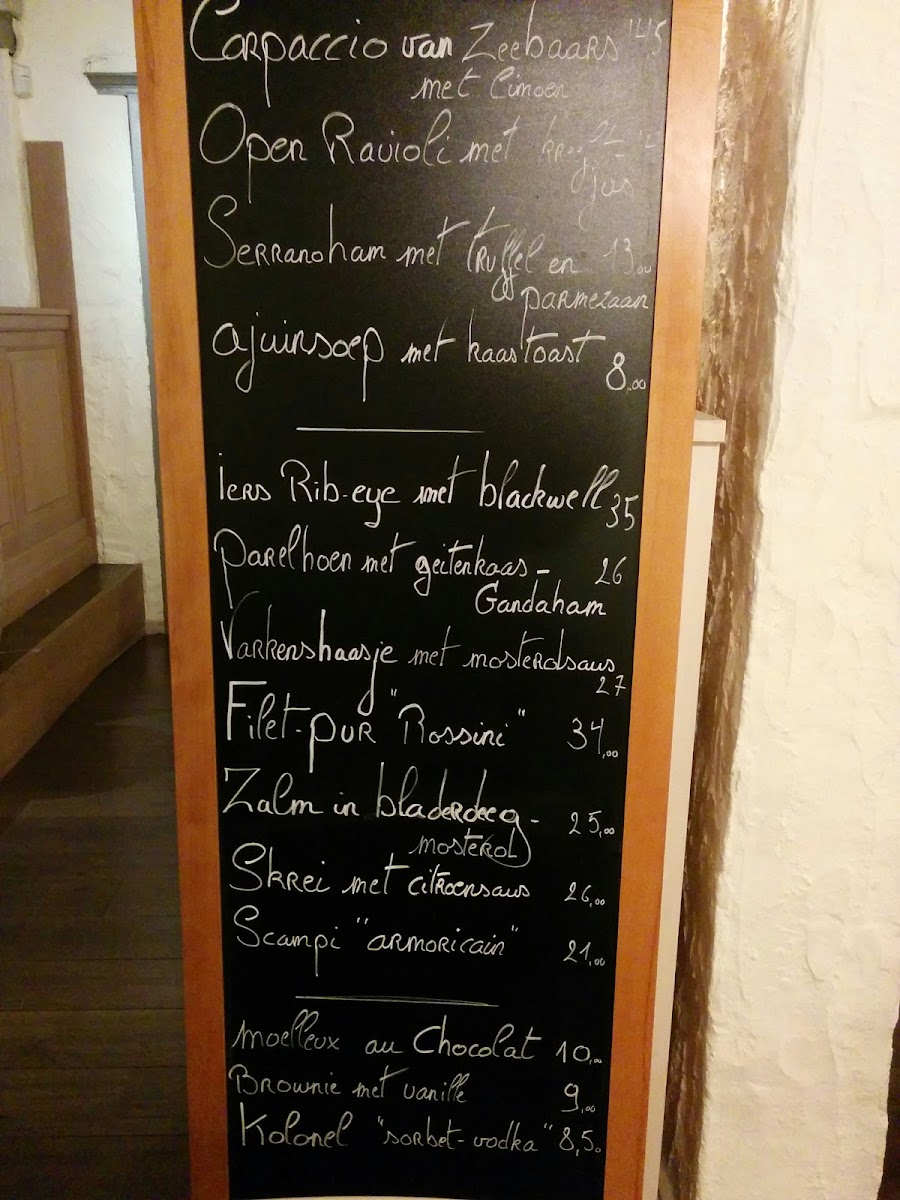 Carpaccio van Zeebaars
met limoen
Open Ravioli met
jus
Serranoham met truffel en 13,00
parmezaan
ajuinsoep met kaastoast
8,00
iers Rib-eye met blackwell 35
parelhoen met geitenkaas - 26
Gandaham
Varkenshaasje met mosterdsaus
27
Filet-pur "Rossini" 34,00
Zalm in bladerdeeg - 25,00
mosterd
Skrei met citroensaus 26,00
Scampi "armoricain" 21,00
moelleux au Chocolat 10,00
Brownie met vanille 9,00
Kolonel "sorbet-vodka" 8,50